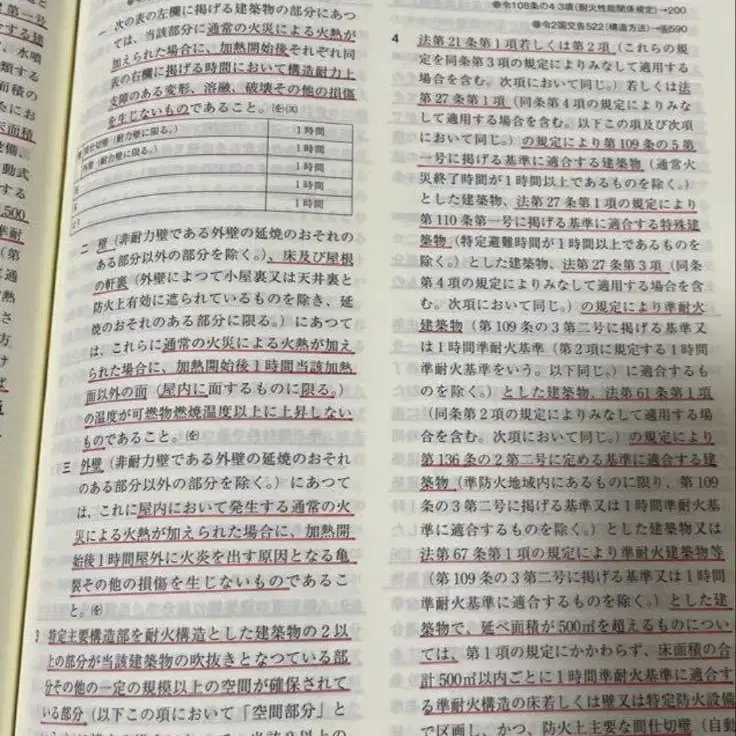 一 次の表の左欄に掲げる建築物の部分にあつ
ては、当該部分に通常の火災による火熱が
加えられた場合に、加熱開始後それぞれ同
表の右欄に掲げる時間において構造耐力上
支障のある変形、溶融、破壊その他の損傷
を生じないものであること。
間仕切壁（耐力壁に限る。） 1時間
外壁（耐力壁に限る。） 1時間
1時間
1時間
1時間
二 壁（非耐力壁である外壁の延焼のおそれの
ある部分以外の部分を除く。）、床及び屋根
の軒裏（外壁によつて小屋裏又は天井裏と
防火上有効に遮られているものを除き、延
焼のおそれのある部分に限る。）にあつて
は、これらに通常の火災による火熱が加え
られた場合に、加熱開始後1時間当該加熱
面以外の面（屋内に面するものに限る。）
の温度が可燃物燃焼温度以上に上昇しない
ものであること。
三 外壁（非耐力壁である外壁の延焼のおそれ
のある部分以外の部分を除く。）にあつて
は、これに屋内において発生する通常の火
災による火熱が加えられた場合に、加熱開
始後1時間屋外に火炎を出す原因となる亀
裂その他の損傷を生じないものであるこ
と。
3 特定主要構造部を耐火構造とした建築物の2以
上の部分が当該建築物の吹抜きとなつている部
分その他の一定の規模以上の空間が確保されて
いる部分（以下この項において「空間部分」と
●令108条の4 3項（耐火性能関係規定）→200
●令2国交告522（構造方法）→告590
4 法第21条第1項若しくは第2項（これらの規
定を同条第3項の規定によりみなして適用する
場合を含む。次項において同じ。）若しくは法
第27条第1項（同条第4項の規定によりみな
して適用する場合を含む。以下この項及び次項
において同じ。）の規定により第109条の5第
一号に掲げる基準に適合する建築物（通常火
災終了時間が1時間以上であるものを除く。）
とした建築物、法第27条第1項の規定により
第110条第一号に掲げる基準に適合する特殊建
築物（特定避難時間が1時間以上であるものを
除く。）とした建築物、法第27条第3項（同条
第4項の規定によりみなして適用する場合を含
む。次項において同じ。）の規定により準耐火
建築物（第109条の3第二号に掲げる基準又
は1時間準耐火基準（第2項に規定する1時間
準耐火基準をいう。以下同じ。）に適合するも
のを除く。）とした建築物、法第61条第1項
（同条第2項の規定によりみなして適用する場
合を含む。次項において同じ。）の規定により
第136条の2第二号に定める基準に適合する建
築物（準防火地域内にあるものに限り、第109
条の3第二号に掲げる基準又は1時間準耐火基
準に適合するものを除く。）とした建築物又は
法第67条第1項の規定により準耐火建築物等
（第109条の3第二号に掲げる基準又は1時間
準耐火基準に適合するものを除く。）とした建
築物で、延べ面積が500㎡を超えるものについ
ては、第1項の規定にかかわらず、床面積の合
計500㎡以内ごとに1時間準耐火基準に適合す
る準耐火構造の床若しくは壁又は特定防火設備
で区画し、かつ、防火上主要な間仕切壁（自動